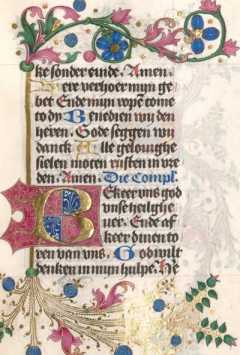 ke sonder einde. Amen.
Here verhoer mijn ge
bet Ende mijn roep come
to dy Benedien wy den
heren. Gode seggen wy
danck Alle gelouighe
sielen moten rusten in vre
den. Amen. Die Compl.
BEkeer vns god
vnse heilighe
uer. Ende af
keer dinen to
ren van vns. God wil
denken in mijn hulpe. He